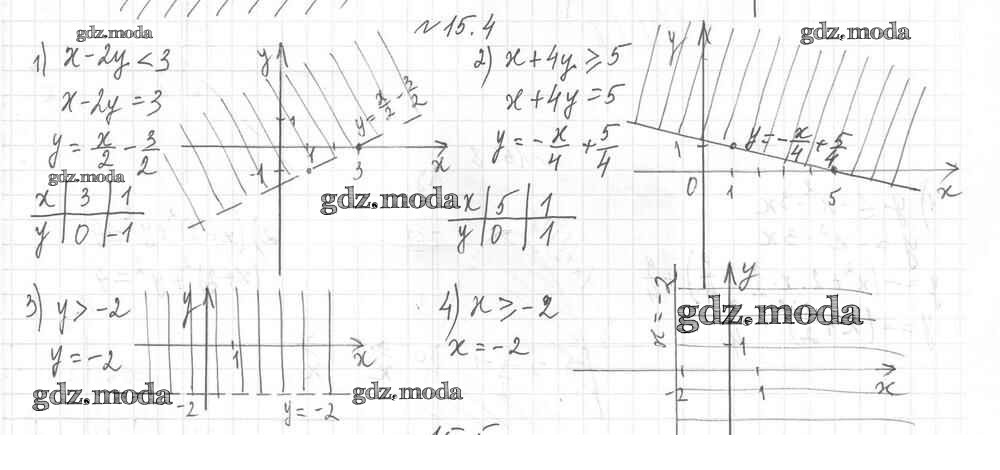 № 15.4
gdz.moda
1) x-2y<3
x-2y=3
y=x/2-3/2
gdz.moda
x 3 1
y 0 -1
y
1
-1
1
3
x
y=x/2-3/2
gdz.moda
gdz.moda
2) x+4y≥5
x+4y=5
y=-x/4+5/4
x 5 1
y 0 1
y
1
0
1
5
x
y=-x/4+5/4
3) y>-2
y=-2
gdz.moda
y
1
x
-2
y=-2
gdz.moda
4) x≥-2
x=-2
x=-2
y
gdz.moda
1
-2
1
x